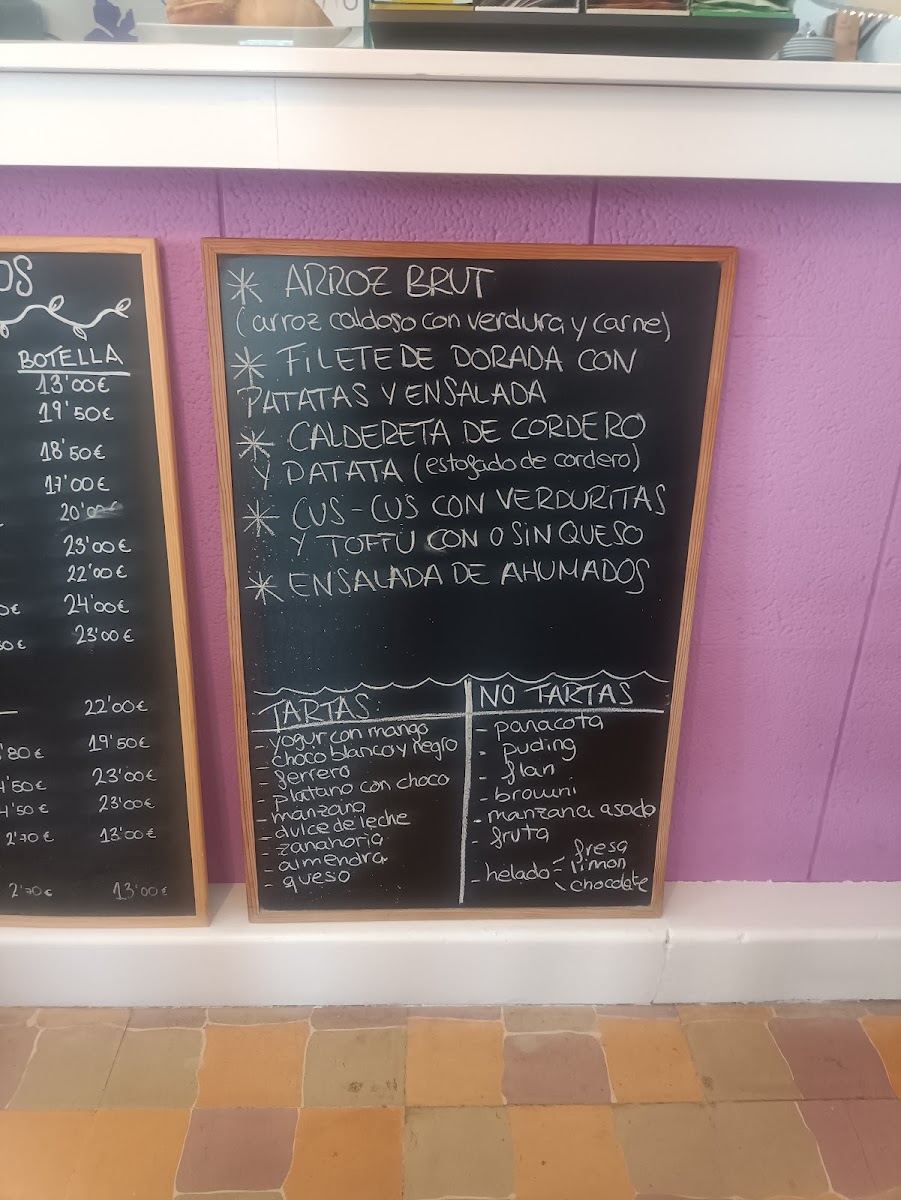 OS
BOTELLA
13'00€
19'50€
18'50€
17'00€
20'00€
23'00€
22'00€
24'00€
23'00€
22'00€
19'50€
23'00€
23'00€
2'70€ 13'00€
2'70€ 13'00€
* ARROZ BRUT
(arroz caldoso con verdura y carne)
* FILETE DE DORADA CON
PATATAS Y ENSALADA
* CALDERETA DE CORDERO
Y PATATA (estofado de cordero)
* CUS-CUS CON VERDURITAS
Y TOFFU CON O SIN QUESO
* ENSALADA DE AHUMADOS
TARTAS:
- yogur con mango
- choco blanco y negro
- ferrero
- platano con choco
- manzana
- dulce de leche
- zanahoria
- almendra
- queso
NO TARTAS
- panacota
- puding
- flan
- browni
- manzana asada
- fruta
- helado - fresa
- limon
- chocolate